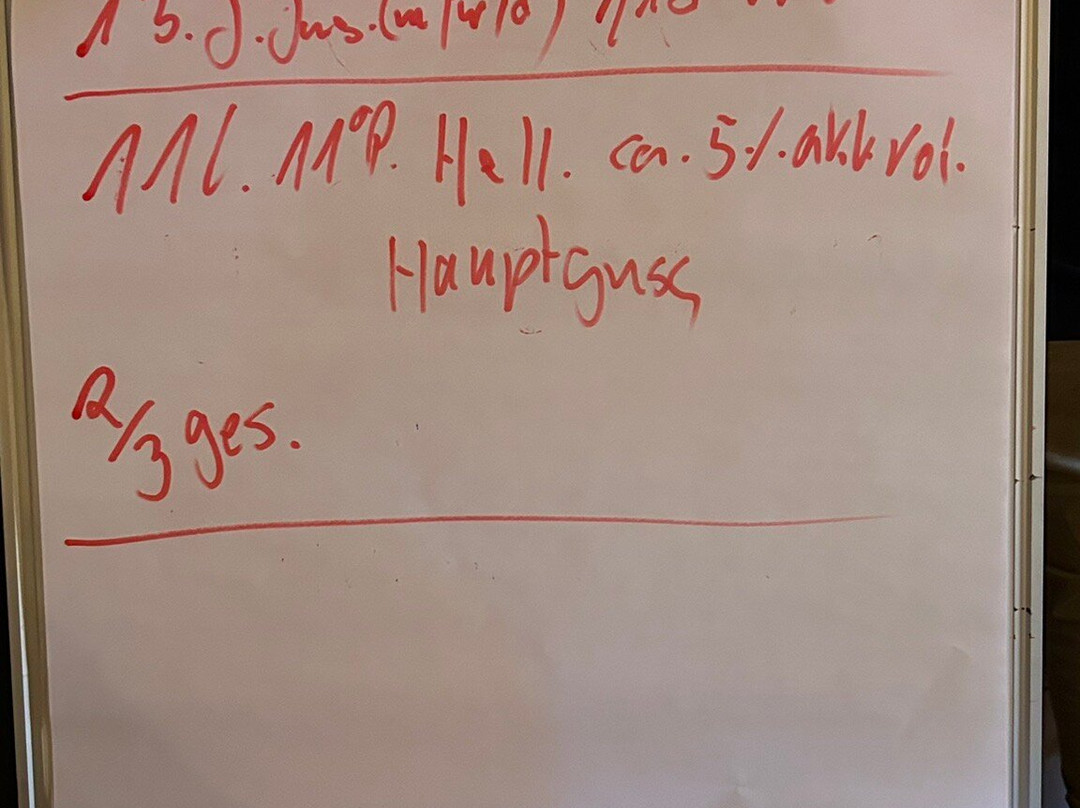 11l. 11°P. Hell. ca. 5%. alk. vol.
Hauptguss
2/3 ges.